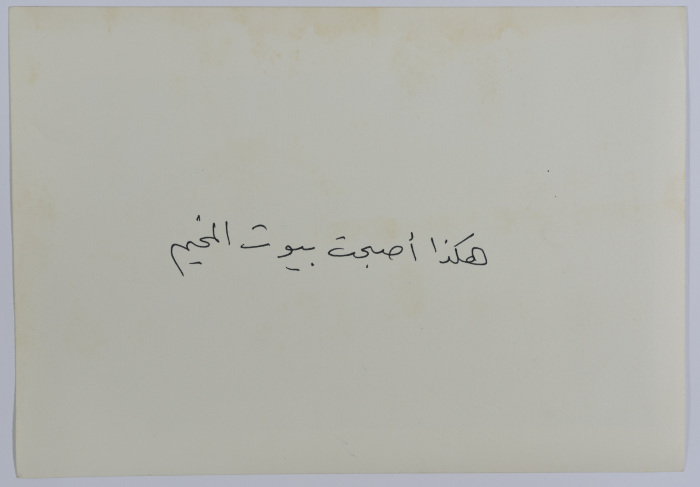 هكذا أصبحت بيوت المخيم